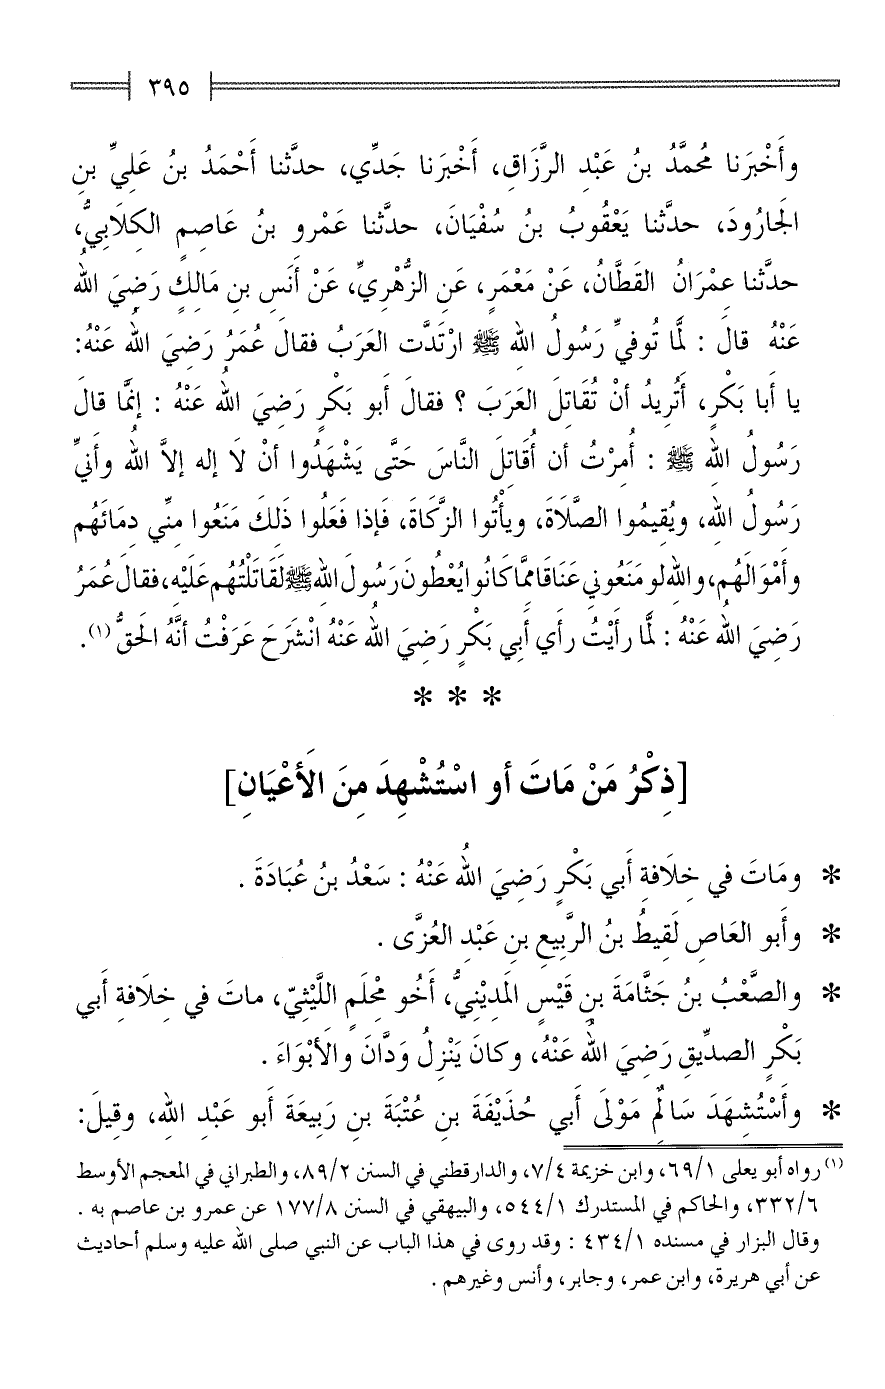 ٣٩٥
وأَخْبَرَنا محُمَّدُ بنُ عَبْدِ الرَّزَاقِ، أَخْبَرَنا جَدِّي، حدَّثنا أَحْمَدُ بنُ عَليِّ بنِ
الجَارُودَ، حدثنا يَعْقُوبُ بنُ سُفْيَانَ، حدَّثنا عَمْرو بنُ عَاصِمٍ الكِلَابيُّ،
حدَّثنا عِمْرَانُ القَطَّانُ، عَنْ مَعْمَرٍ، عَنِ الزُّهْرِيِّ، عَنْ أَنَسِ بنِ مَالِكٍ رَضِيَ اللهُ
عَنْهُ قالَ : لمَّا تُوفيِّ رَسُولُ اللهِ ﷺ ارْتَدَّت العَرَبُ فقالَ عُمَرُ رَضِيَ اللهُ عَنْهُ:
يا أبا بَكْرٍ، أَتُرِيدُ أنْ تُقَاتِلَ العَرَبَ ؟ فقالَ أَبو بَكْرٍ رَضِيَ اللهُ عَنْهُ : إنمَّا قالَ
رَسُولُ اللهِ ﷺ : أُمِرْتُ أن أُقَاتِلَ النَّاسَ حَتَّى يَشْهَدُوا أنْ لَا إله إلاَّ اللهُ وأَنيِّ
رَسُولُ اللهِ، ويُقِيمُوا الصَّلَاةَ، ويأْتُوا الزَّكَاةَ، فَإذا فَعَلُوا ذَلِكَ مَنَعُوا مِنِّي دِمَائَهُم
وأَمْوَالَهُم، واللهِ لو مَنَعُوني عَنَاقَا ممَّا كَانُوا يُعْطُونَ رَسُولَ اللهِ ﷺ لَقَاتَلْتُهُم عَلَيْهِ، فقالَ عُمَرُ
رَضِيَ اللهُ عَنْهُ : لمَّا رأَيْتُ رأي أَبي بَكْرٍ رَضِيَ اللهُ عَنْهُ انْشَرَحَ عَرَفْتُ أنَّهُ الحَقُّ(١).
* * *
[ذِكْرُ مَنْ مَاتَ أو اسْتُشْهِدَ مِنَ الأَعْيَانِ]
* ومَاتَ في خِلَافةِ أَبي بَكْرٍ رَضِيَ اللهُ عَنْهُ : سَعْدُ بنُ عُبَادَةَ .
* وأَبو العَاصِ لَقِيطُ بنُ الرَّبِيعِ بنِ عَبْدِ العُزَّى .
* والصَّعْبُ بنُ جَثَّامَةَ بنِ قَيْسٍ المَدِيْنيُّ، أَخُو محْلَمٍ اللَّيْثِيّ، ماتَ في خِلَافةِ أَبي
بَكْرٍ الصدِّيقِ رَضِيَ اللهُ عَنْهُ، وكانَ يَنْزِلُ وَدَّانَ والأَبْوَاءَ .
* وأُسْتُشِهَدَ سَالمٌ مَوْلَى أَبي حُذَيْفَةَ بنِ عُتْبَةَ بنِ رَبِيعَةَ أَبو عَبْدِ اللهِ، وقِيلَ:
(١) رواه أبو يعلى ٦٩/١، وابن خزيمة ٧/٤، والدارقطني في السنن ٨٩/٢، والطبراني في المعجم الأوسط
٣٣٢/٦، والحاكم في المستدرك ٥٤٤/١، والبيهقي في السنن ١٧٧/٨ عن عمرو بن عاصم به .
وقال البزار في مسنده ٤٣٤/١ : وقد روى في هذا الباب عن النبي صلى الله عليه وسلم أحاديث
عن أبي هريرة، وابن عمر، وجابر، وأنس وغيرهم .